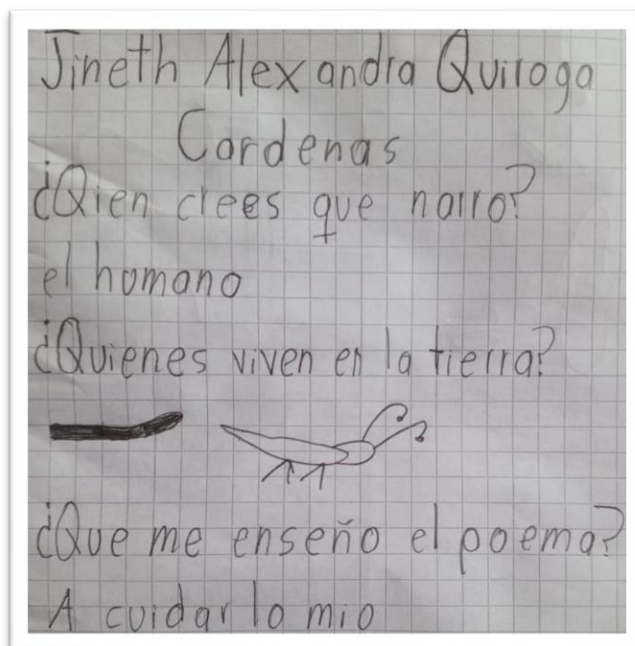 Jineth Alexandra Quiroga
Cardenas
¿Qien crees que narro?
el humano
¿Quienes viven en la tierra?
¿Que me enseño el poema?
A cuidar lo mio